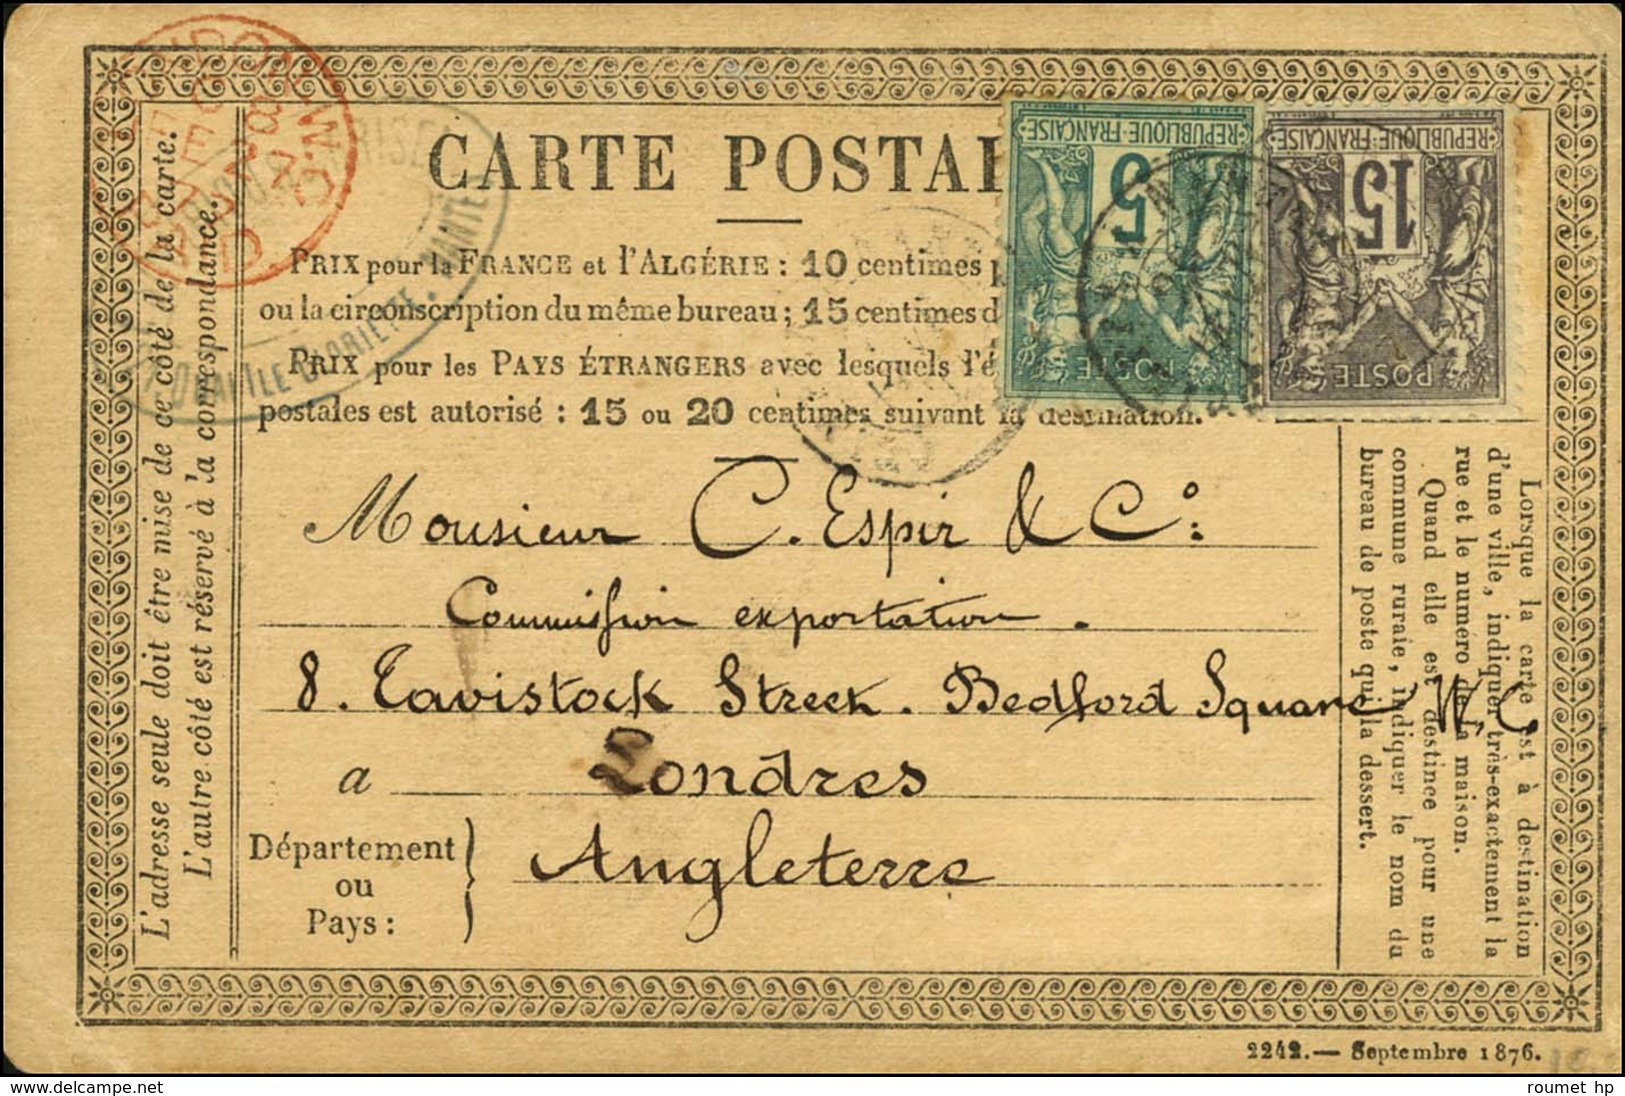 CARTE POSTAL
PRIX pour la FRANCE et l'ALGÉRIE : 10 centimes
ou la circonscription du même bureau ; 15 centimes d
PRIX pour les PAYS ÉTRANGERS avec lesquels l'é
postales est autorisé : 15 ou 20 centimes suivant la destination.
RÉPUBLIQUE FRANÇAISE
5
POSTE
RÉPUBLIQUE FRANÇAISE
15
POSTE
LONDON W.C
PAID
NANTES
L'adresse seule doit être mise de ce côté de la carte.
L'autre côté est réservé à la correspondance.
Monsieur C. Espir & Cº:
Commission exportation.
8. Tavistock Street. Bedford Square W.C.
a Londres
PD
Département
ou
Pays :
Angleterre
Lorsque la carte est à destination
d'une ville, indiquer très-exactement la
rue et le numéro de la maison.
Quand elle est destinée pour une
commune rurale, indiquer le nom du
bureau de poste qui la dessert.
2242.— Septembre 1876.
roumet hp